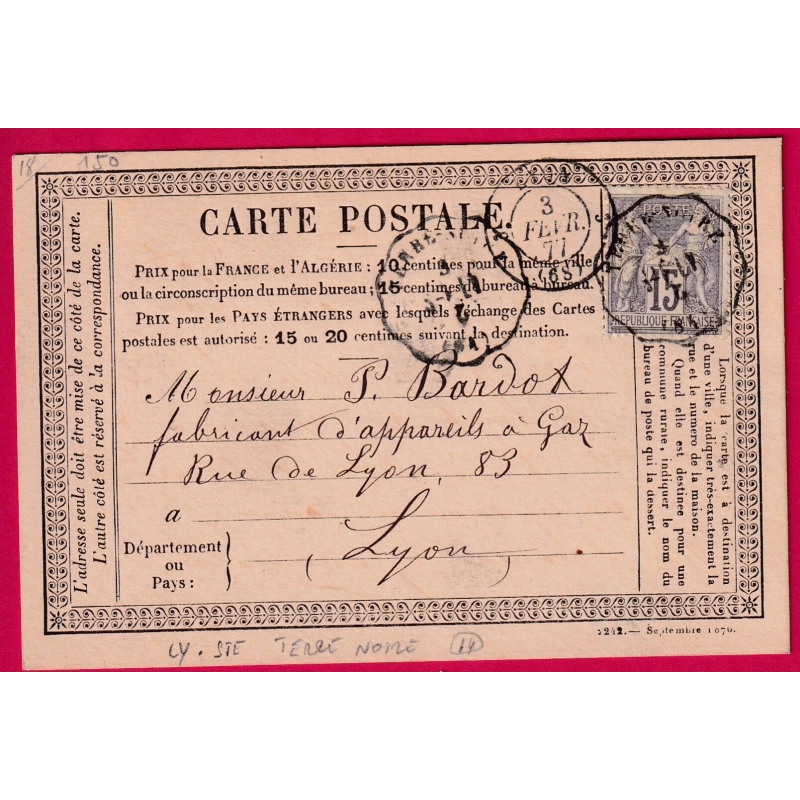 18 150
CARTE POSTALE.
3
FÉVR.
77
(68)
PRIX pour la FRANCE et l'ALGÉRIE : 10 centimes pour la même ville
ou la circonscription du même bureau ; 15 centimes de bureau à bureau.
PRIX pour les PAYS ÉTRANGERS avec lesquels l'échange des Cartes
postales est autorisé : 15 ou 20 centimes suivant la destination.
15
REPUBLIQUE FRANCAISE
Monsieur P. Bardot
fabricant d'appareils à Gaz
Rue de Lyon, 83
a
Département
ou
Pays :
Lyon
L'adresse seule doit être mise de ce côté de la carte.
L'autre côté est réservé à la correspondance.
Lorsque la carte est à destination
d'une ville, indiquer très-exactement la
rue et le numéro de la maison.
Quand elle est destinée pour une
commune rurale, indiquer le nom du
bureau de poste qui la dessert.
2242. — Septembre 1876.
LY. STE TERRE NOIRE 14